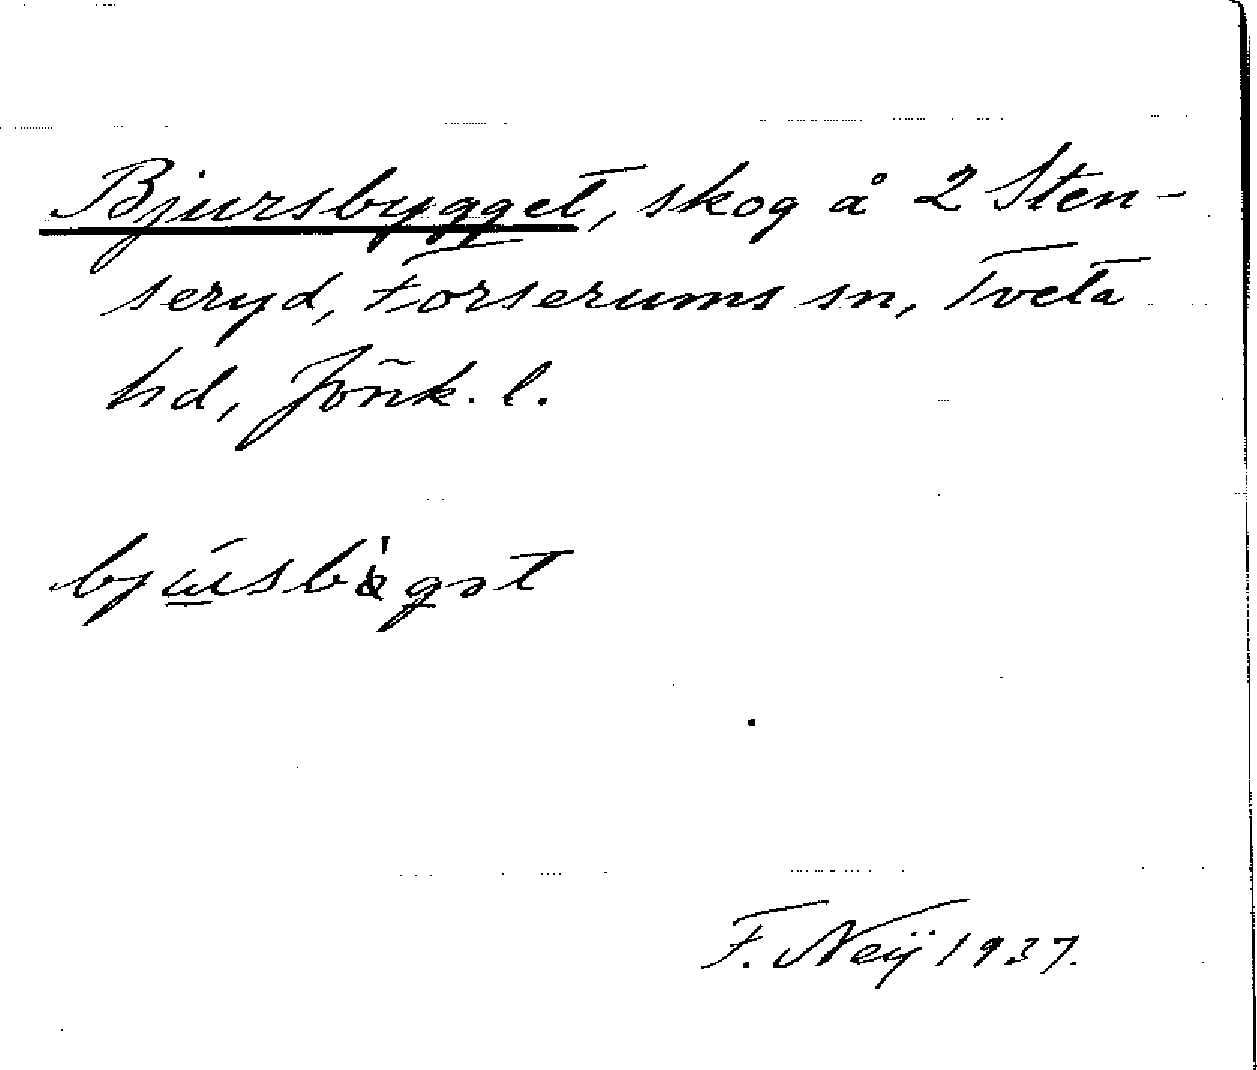 Bjursbygget, skog å 2 Sten-
seryd, Forserums sn, Tveta
hd, Jönk. l.
F. Neÿ 1937.